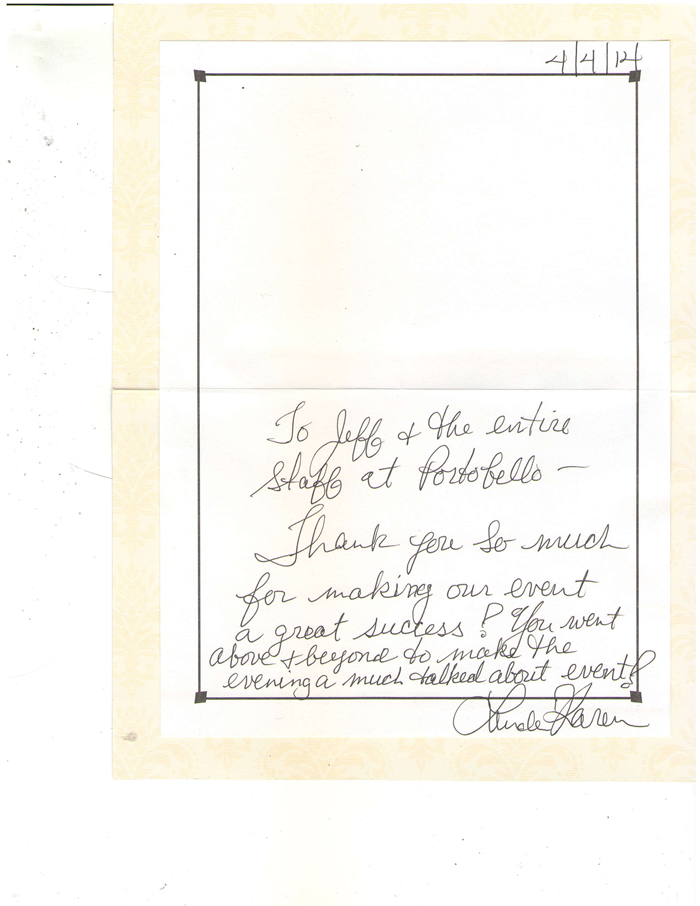 4/4/14
To Jeff & the entire
staff at Portobello —
Thank you so much
for making our event
a great success! You went
above & beyond to make the
evening a much talked about event!
Karen